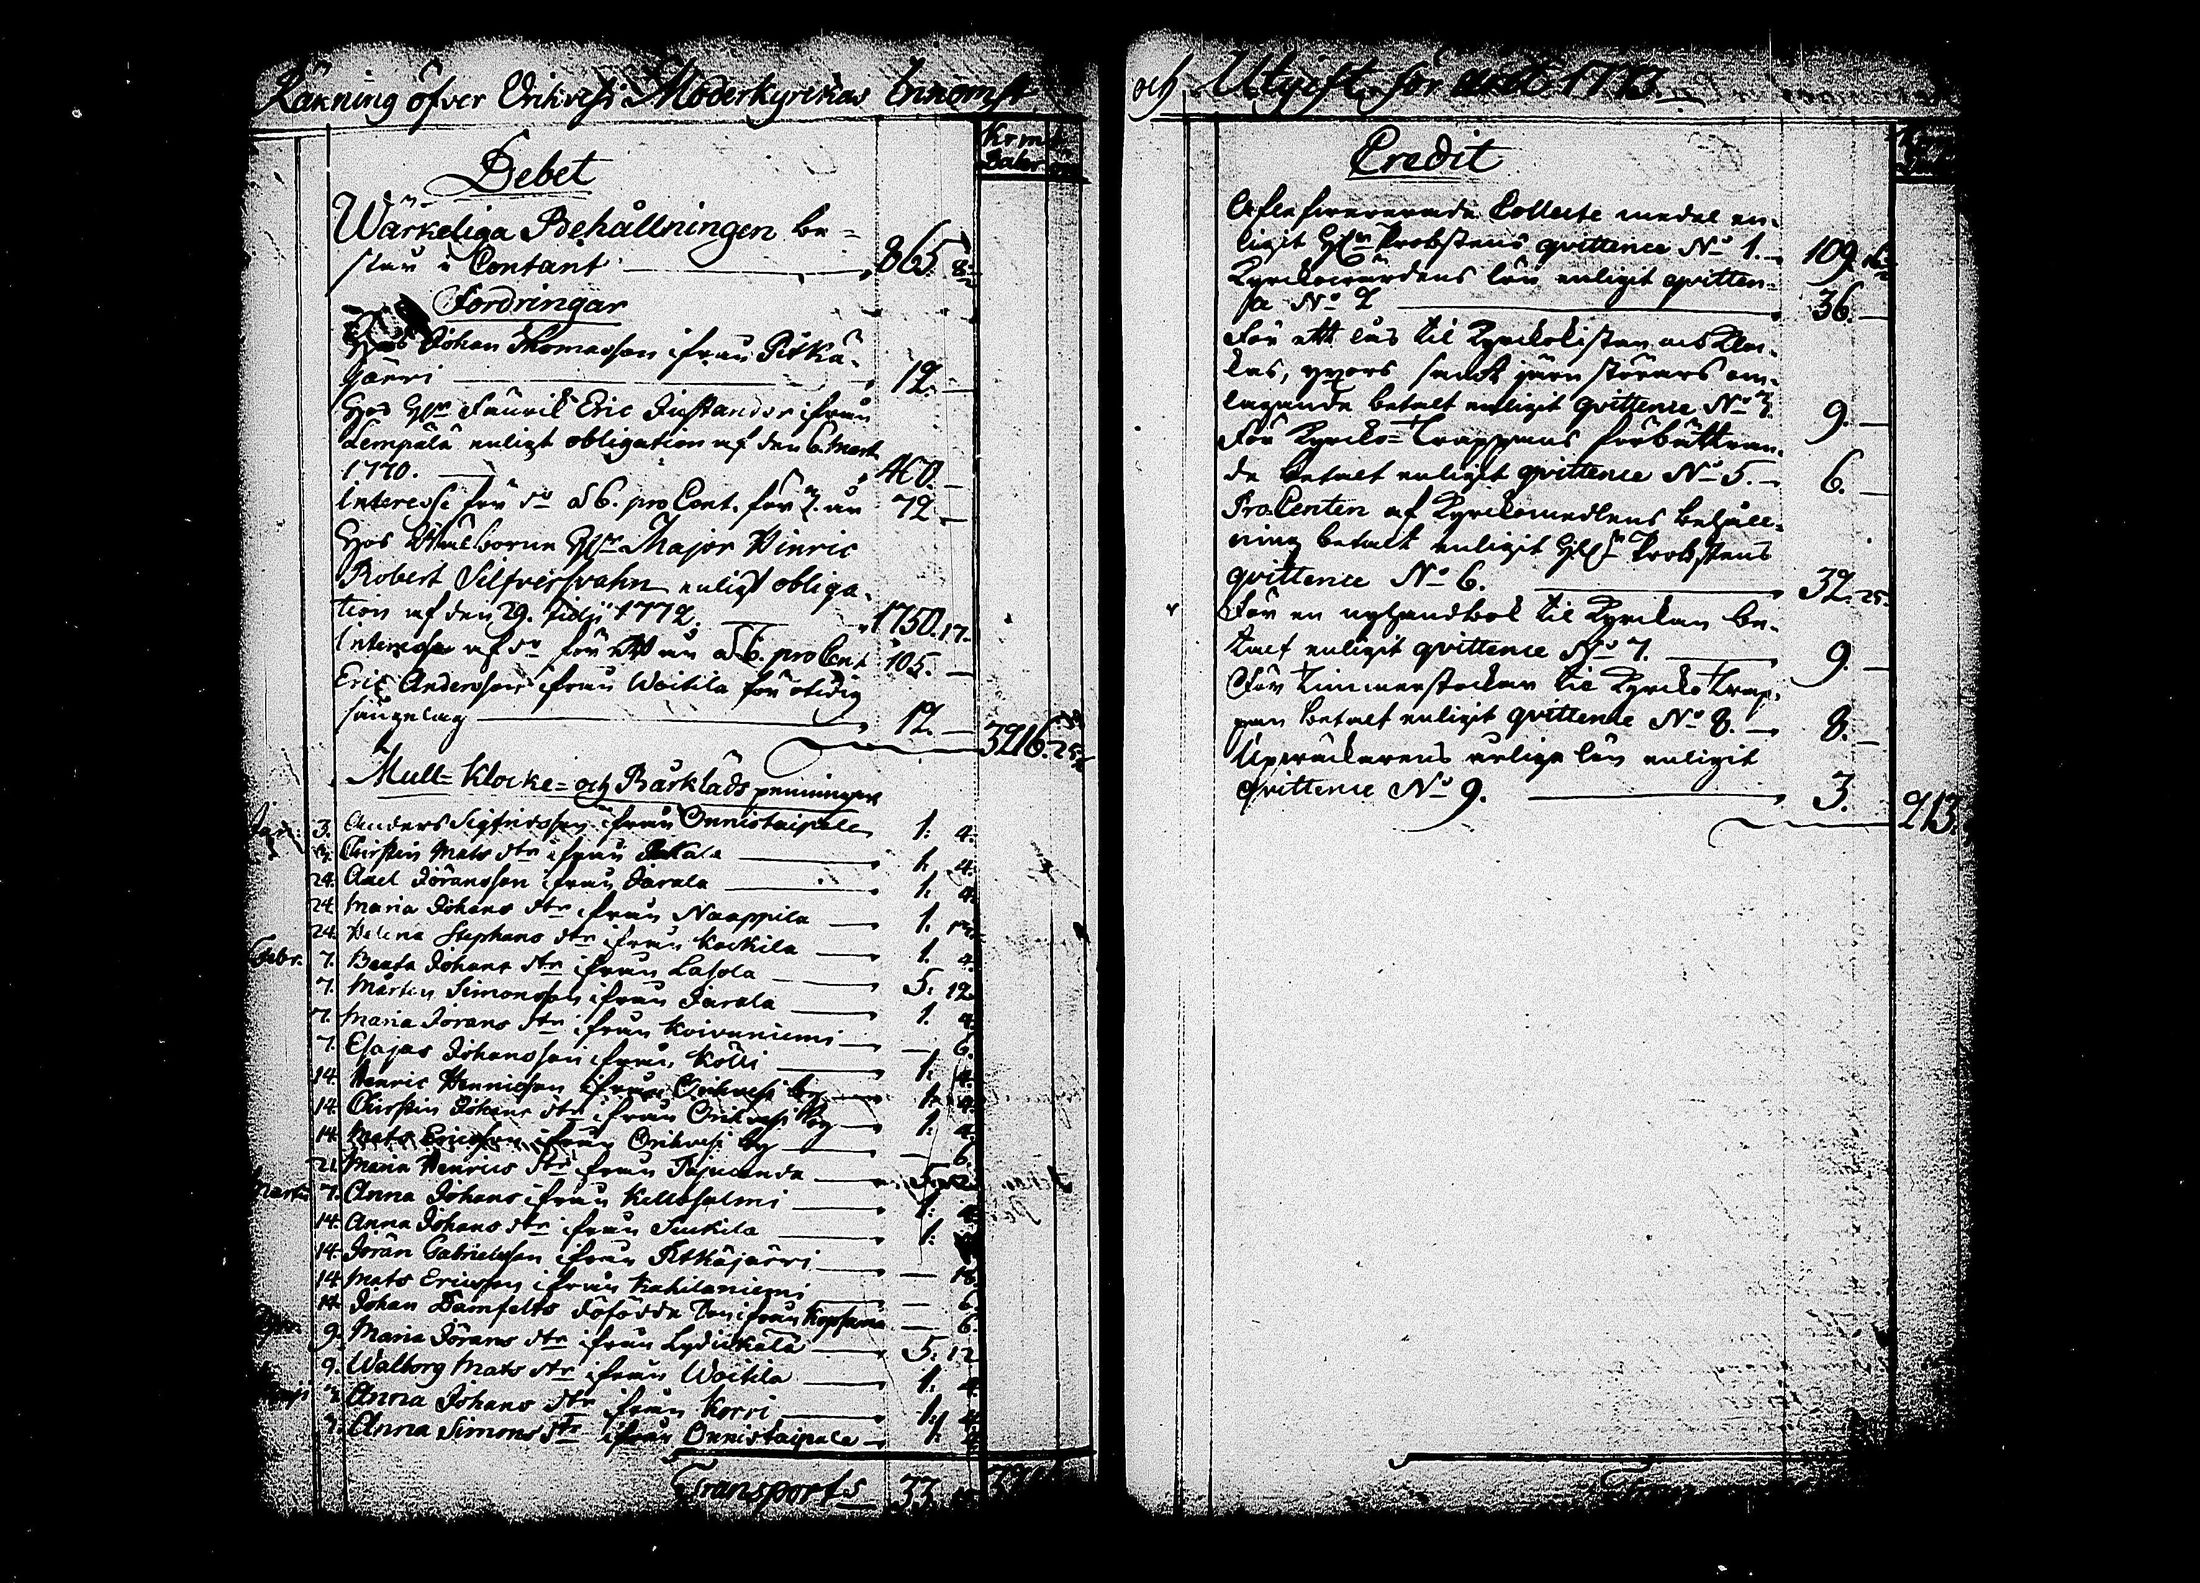 Räkning öfver Orihvesi Moderkyrckas Inkomst
Debet
Kr mt
Daler
Wärkeliga Behållningen be=
står i Contant 865. 8
Fordringar
Hos Johan Thomasson ifrån Pitkä-
järvi 12. —
Hos H:r Fändrik Eric Justander ifrån
Lempälä enligt obligation af den 6. Mart
1770. 400. —
Interesse för d:o à 6. pro Cent. för 3. år 72. —
Hos Wälborne H:r Major Hinric
Robert Silfversvahn enligt obliga-
tion af den 29. 1772. 1750. 17.
Interesse af d:o för ett år à 6. pro Cent 105. —
Eric Andersson ifrån Woitila för otidig
sängelag 12. — 3216. 25
Mull= Klocke= och Bårklädspenningar
Jan: 3. Anders Sigfridsson ifrån Onnistaipale 1: 4.
Chirstin Mats dtr ifrån 1. 4.
24. Axel Jöransson ifrån Jarala 1: 4.
24. Maria Johans dtr ifrån Naappila 1.
24. Helena Stephans dtr ifrån Kockila 1. 4.
Febr. 7. Beata Johans dtr ifrån Lasola 5: 12.
7. Mårten Simonsson ifrån Jarala 1. 4.
7. Maria Jörans dtr ifrån Koivuniemi — 6.
7. Esajas Johansson ifrån Kölli 1: 4.
14. Henric Henricsson ifrån Orihvesi by 1: 4.
14. Chirstin Johans dtr ifrån Orihvesi by 1: 4.
14. Mats Ericsson ifrån Orihvesi by — 6.
21. Maria Henrics dtr ifrån 5. 12.
Martii 7. Anna Johans ifrån Kellosalmi 1: 4.
14. Anna Johans dtr ifrån 1:
14. Jöran Gabrielsson ifrån Pitkäjärvi — 18.
14. Mats Ericsson ifrån Kahilaniemi — 6.
14. Johan Damfelts dödfödda Son ifrån — 6.
9. Maria Jörans dtr ifrån Lyduckala 5: 12
9. Walborg Mats dtr ifrån Woitila 1: 4.
Anna Johans dtr ifrån Korri 1: 4.
Anna Simons dtr ifrån Onnistaipale 1: 4.
Transports 33.
och Utgift för året 1773.
Credit
Aflefwererade Collecte medel en-
ligit H:r Probstens qvittence N:o 1. 109. 16
Kyrckowärdens lön enligit qvitten-
ce N:o 2 36. —
För ett lås til Kyrckokistan och
kas, samt järn störars om-
lagande betalt enligit qvittence N:o 3. 9. —
För Kyrcko=Trappans förbättran-
de betalt enligit qvittence N:o 5. 6. —
ProCenten af Kyrckomedlens behåll-
ning betalt enligit H:r Probstens
qvittence N:o 6. 32. 25.
För en ny handbok til Kyrckan be-
talt enligit qvittence N:o 7. 9. —
För timmerstockar til Kyrcko Trap-
pan betalt enligit qvittence N:o 8. 8. —
Upväckarens årliga lön enligit
qvittence N:o 9. 3. 213.